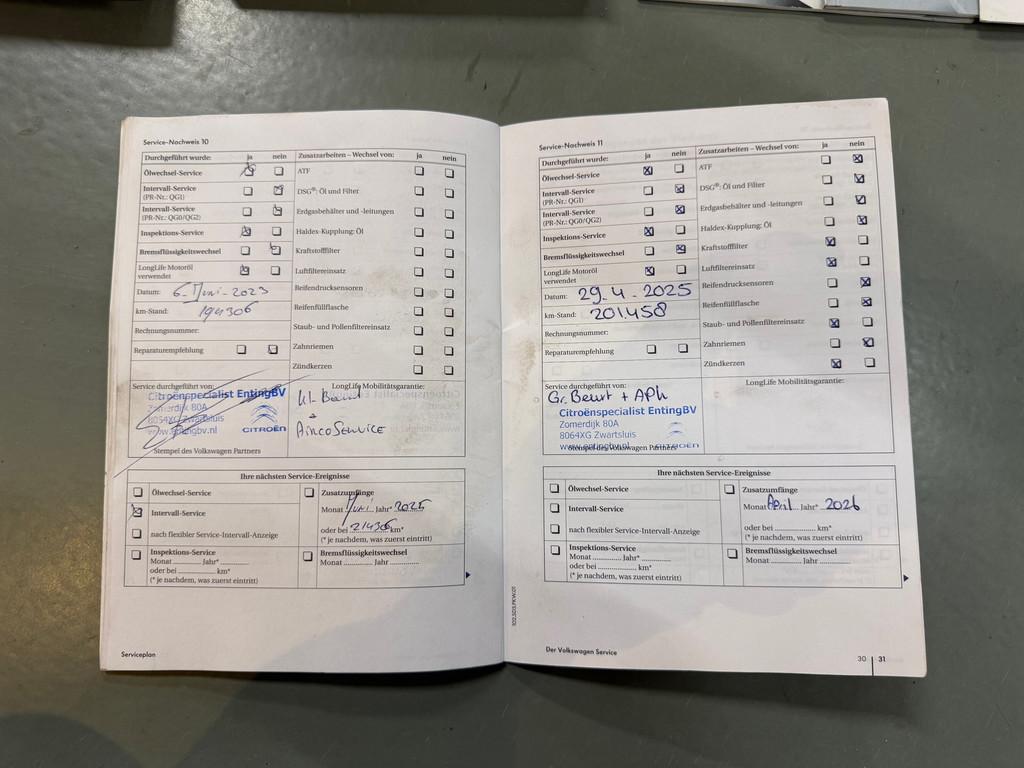 Service-Nachweis 10
Durchgeführt wurde: ja nein Zusatzarbeiten – Wechsel von: ja nein
Ölwechsel-Service ATF
Intervall-Service
(PR-Nr.: QG1) DSG®: Öl und Filter
Intervall-Service
(PR-Nr.: QG0/QG2) Erdgasbehälter und -leitungen
Inspektions-Service Haldex-Kupplung: Öl
Bremsflüssigkeitswechsel Kraftstofffilter
LongLife Motoröl
verwendet Luftfiltereinsatz
Datum: 6-Juni-2023 Reifendrucksensoren
km-Stand: 194306 Reifenfüllflasche
Rechnungsnummer: Staub- und Pollenfiltereinsatz
Reparaturempfehlung Zahnriemen
Zündkerzen
Service durchgeführt von: LongLife Mobilitätsgarantie:
Citroënspecialist EntingBV
Zomerdijk 80A
8064XG Zwartsluis
www.entingbv.nl CITROËN
Kl-Beurt
+
AircoService
Stempel des Volkswagen Partners
Ihre nächsten Service-Ereignisse
Ölwechsel-Service Zusatzumfänge
Intervall-Service Monat Juni Jahr* 2025
nach flexibler Service-Intervall-Anzeige oder bei 214306 km*
(* je nachdem, was zuerst eintritt)
Inspektions-Service Bremsflüssigkeitswechsel
Monat ............ Jahr* ............ Monat ............ Jahr ............
oder bei ............ km*
(* je nachdem, was zuerst eintritt)
Serviceplan
Service-Nachweis 11
Durchgeführt wurde: ja nein Zusatzarbeiten – Wechsel von: ja nein
Ölwechsel-Service ATF
Intervall-Service
(PR-Nr.: QG1) DSG®: Öl und Filter
Intervall-Service
(PR-Nr.: QG0/QG2) Erdgasbehälter und -leitungen
Inspektions-Service Haldex-Kupplung: Öl
Bremsflüssigkeitswechsel Kraftstofffilter
LongLife Motoröl
verwendet Luftfiltereinsatz
Datum: 29-4-2025 Reifendrucksensoren
km-Stand: 201.458 Reifenfüllflasche
Rechnungsnummer: Staub- und Pollenfiltereinsatz
Reparaturempfehlung Zahnriemen
Zündkerzen
Service durchgeführt von: LongLife Mobilitätsgarantie:
Gr. Beurt + APK
Citroënspecialist EntingBV
Zomerdijk 80A
8064XG Zwartsluis
www.entingbv.nl CITROËN
Stempel des Volkswagen Partners
Ihre nächsten Service-Ereignisse
Ölwechsel-Service Zusatzumfänge
Intervall-Service Monat April Jahr* 2026
nach flexibler Service-Intervall-Anzeige oder bei ............ km*
(* je nachdem, was zuerst eintritt)
Inspektions-Service Bremsflüssigkeitswechsel
Monat ............ Jahr* ............ Monat ............ Jahr ............
oder bei ............ km*
(* je nachdem, was zuerst eintritt)
Der Volkswagen Service
30 31